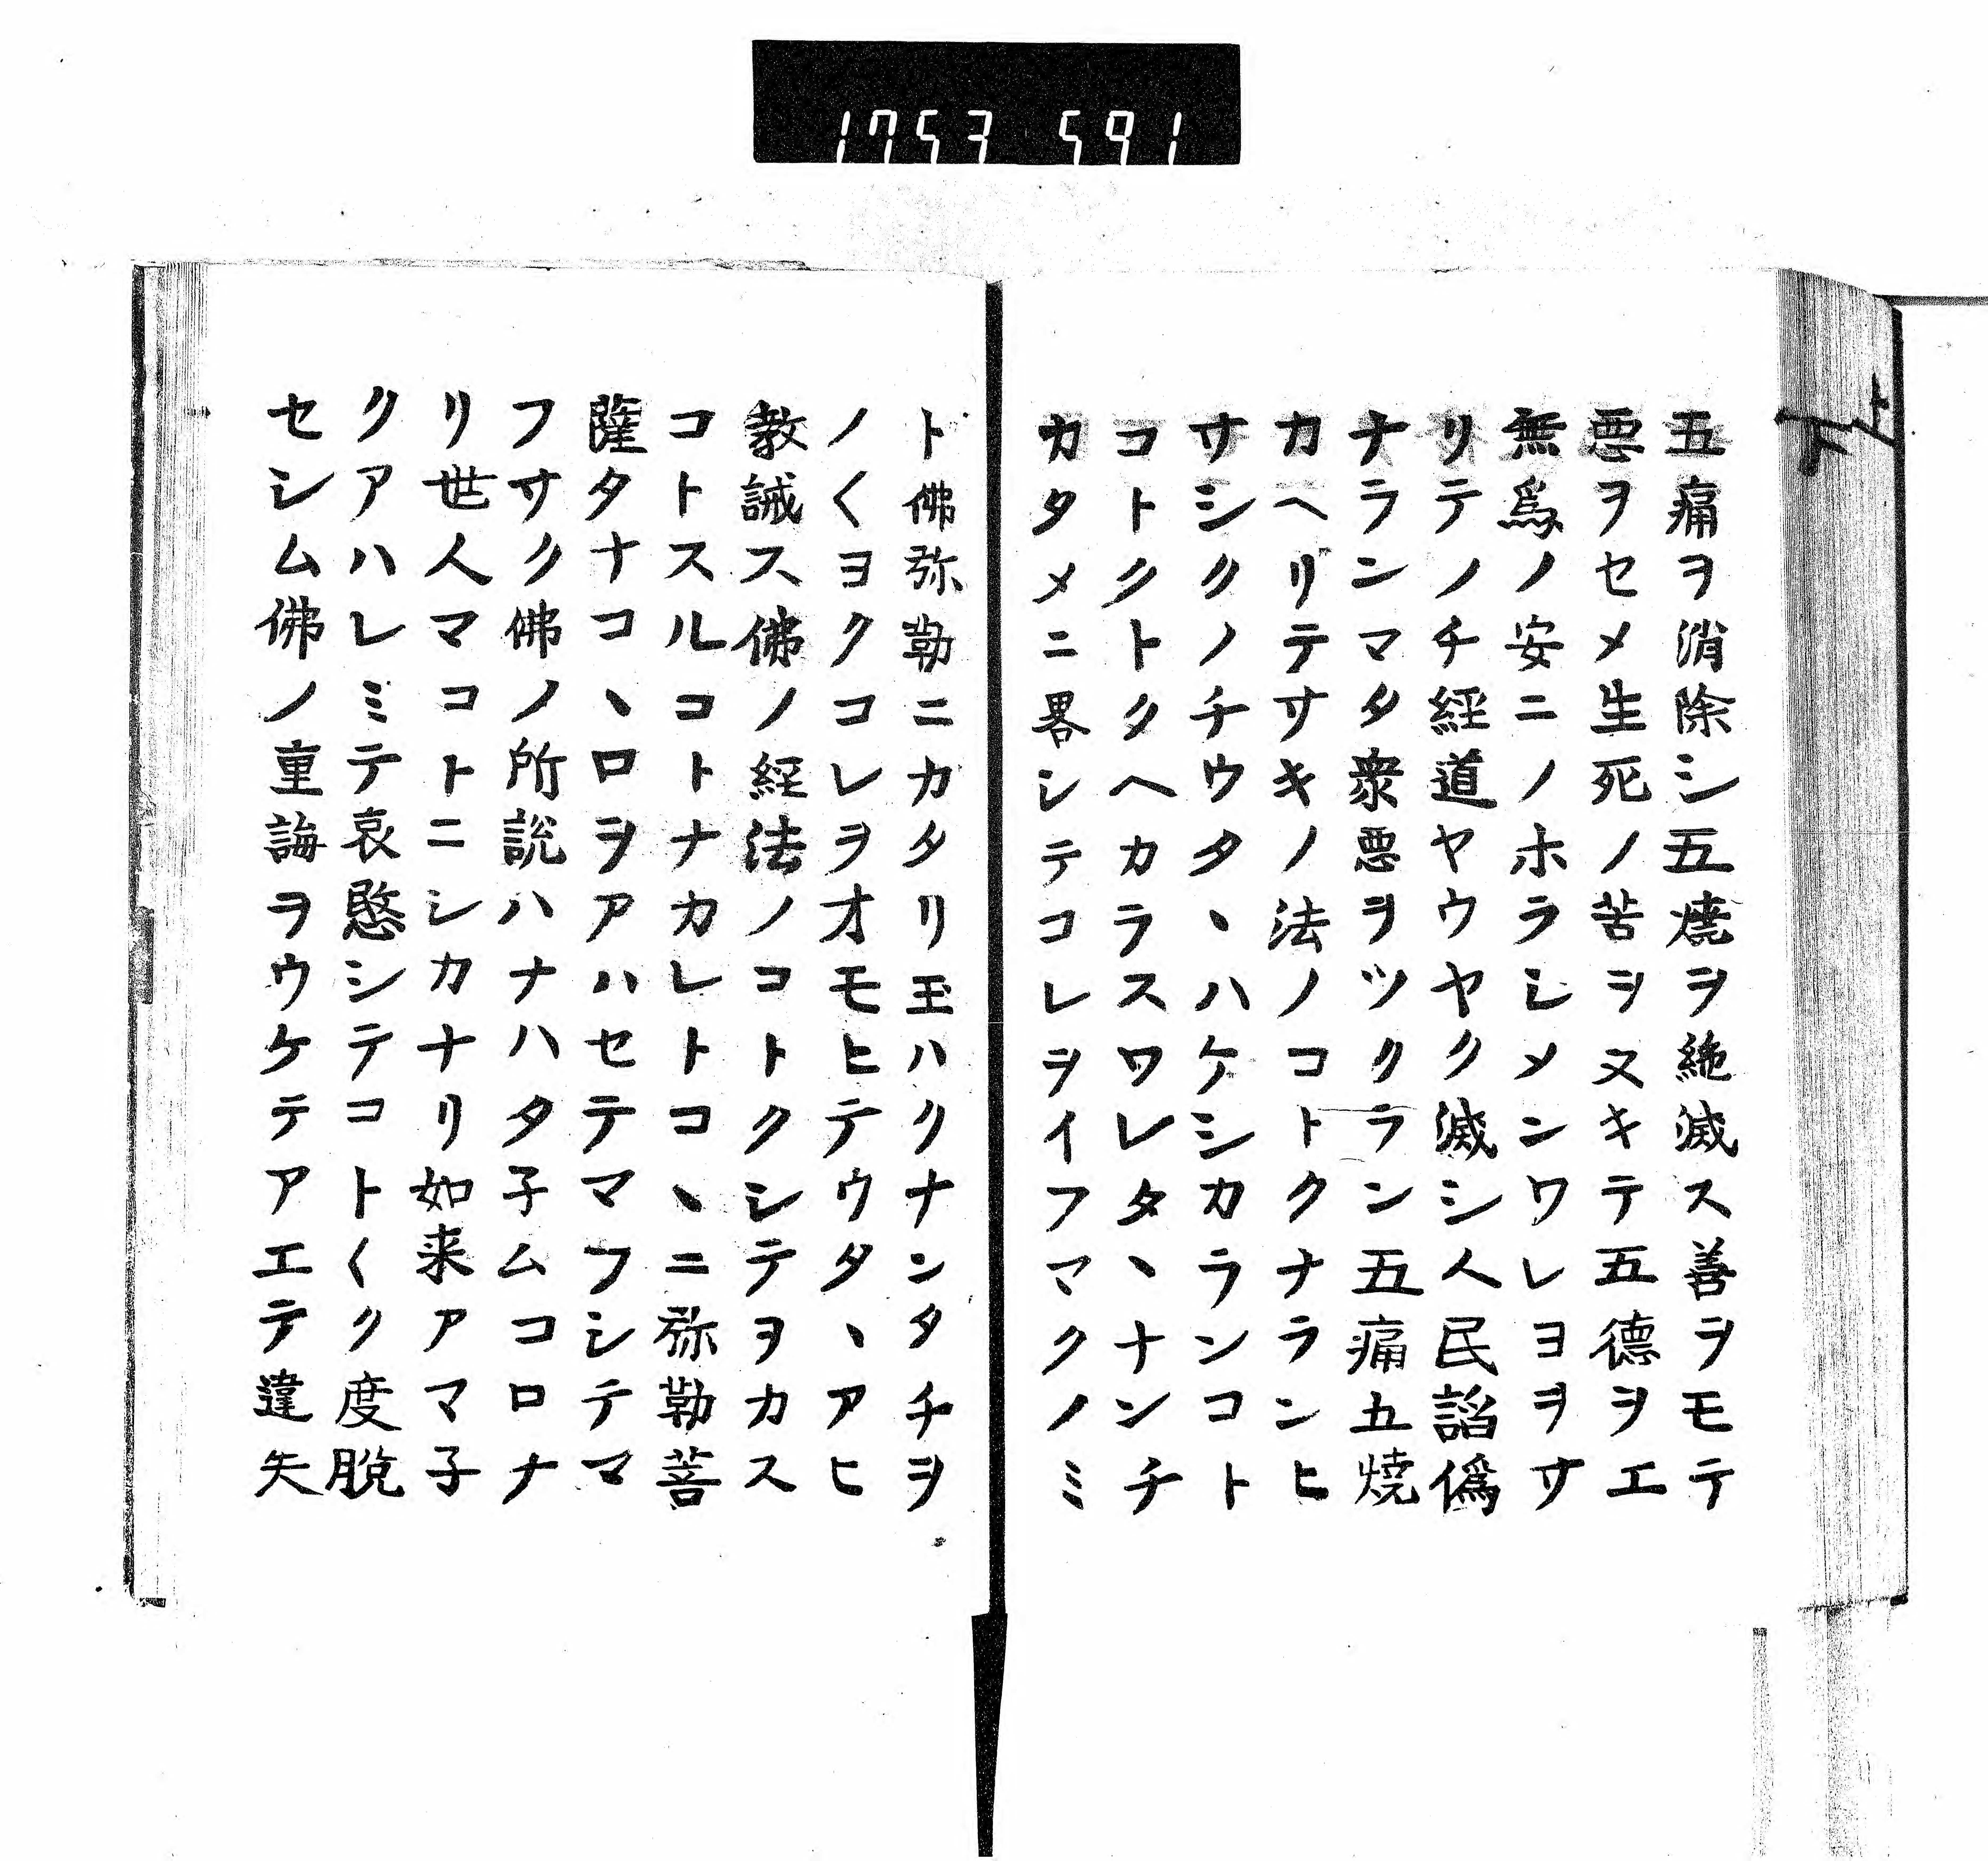 1753 591
五痛ヲ消除シ五焼ヲ絶滅ス善ヲモテ
悪ヲセメ生死ノ苦ヲヌキテ五徳ヲエ
無為ノ安ニノホラシメンワレヨヲサ
リテノチ経道ヤウヤク滅シ人民諂偽
ナランマタ衆悪ヲツクラン五痛五焼
カヘリテサキノ法ノコトクナランヒ
サシクノチウタヽハケシカランコト
コトクトクヘカラスワレタヽナンチ
カタメニ畧シテコレヲイフマクノミ
ト佛弥勒ニカタリ玉ハクナンタチヲ
ノ〱ヨクコレヲオモヒテウタヽアヒ
教誡ス佛ノ経法ノコトクシテヲカス
コトスルコトナカレトコヽニ弥勒菩
薩タナコヽロヲアハセテマフシテマ
フサク佛ノ所説ハナハタ子ムコロナ
リ世人マコトニシカナリ如来アマ子
クアハレミテ哀愍シテコト〱ク度脱
セシム佛ノ重誨ヲウケテアエテ違失